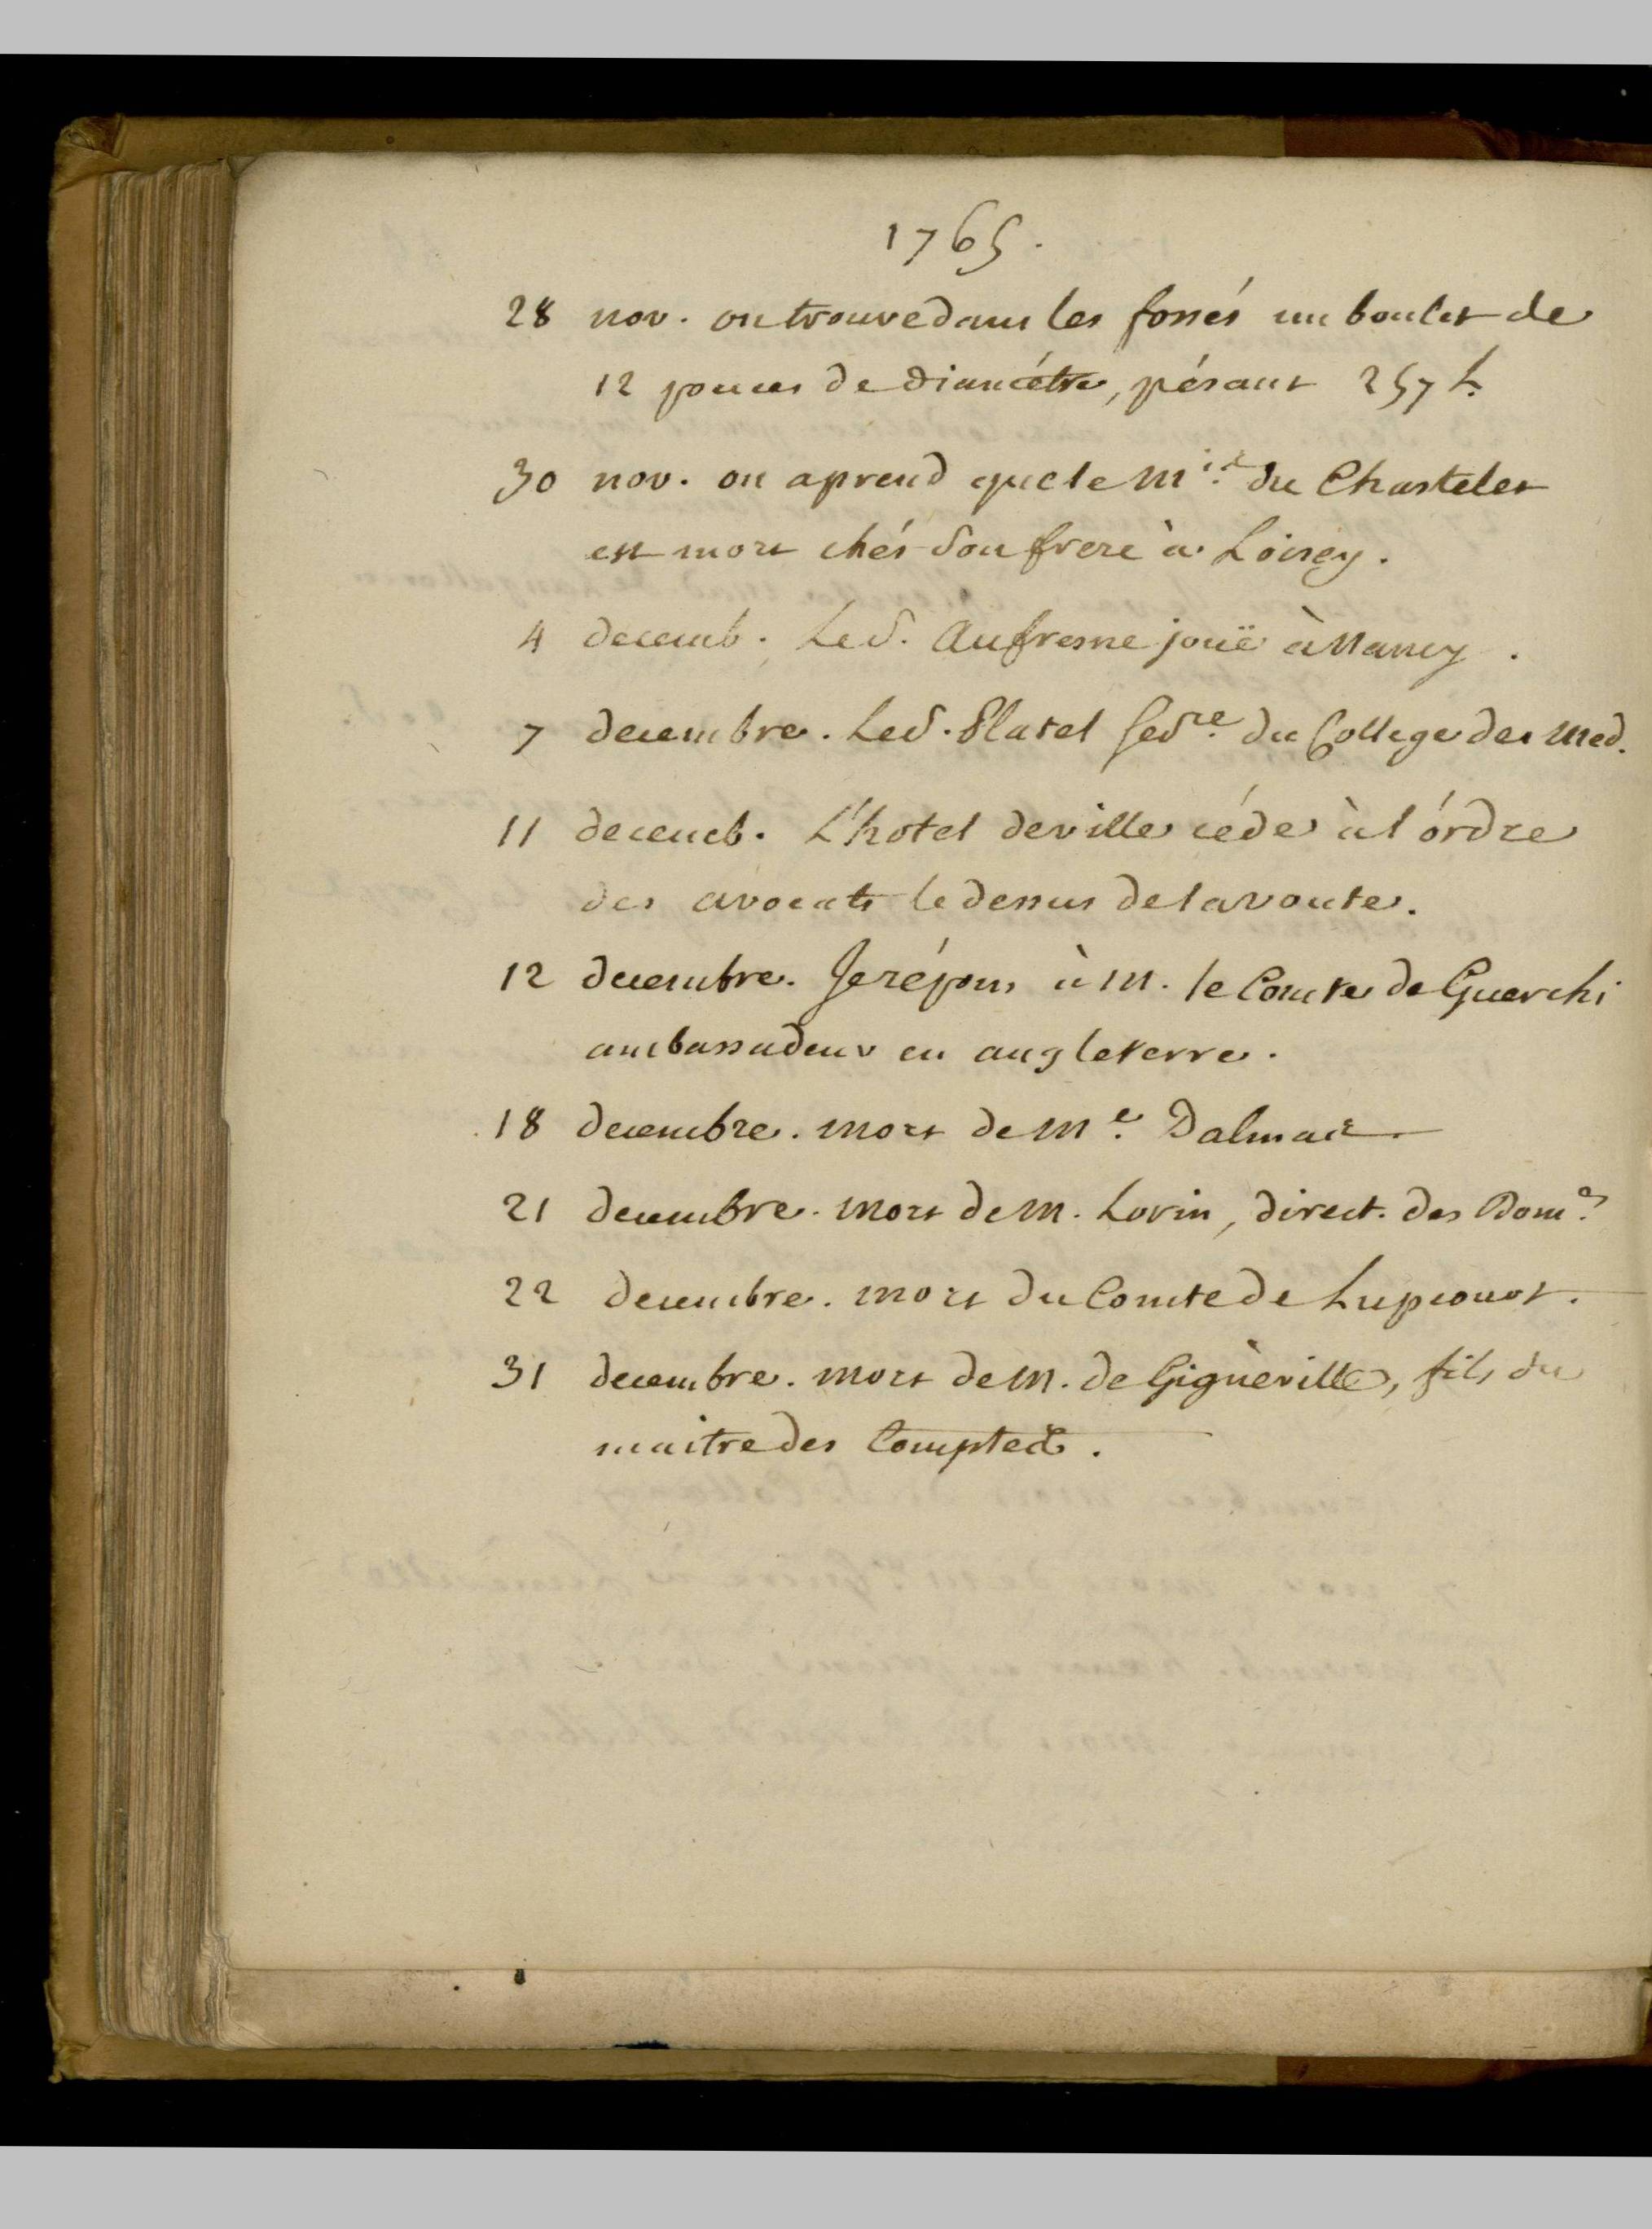 1765.
28 nov. on trouve dans les fossés un boulet de
12 pouces de diamétre, pésant 257 L.
30 nov. on aprend que le M.is du Chastelet
est mort chés son frere à Loisey.
4 decemb. Le S. Aufresne joüe à Nancy.
7 decembre. Le S. Platel Secre. du College des Med.
11 decemb. L'hotel de ville céde à l'órdre
des avocats le dessus de la voute.
12 decembre. Je répons à M. le Comte de Guerchi
ambassadeur en angleterre.
18 decembre. mort de Me. Dalmas
21 decembre. mort de M. Lorin, direct. des Dom.es
22 decembre. mort du Comte de Lupcourt.
31 decembre. mort de M. de Gignèville, fils du
maitre des Comptes.